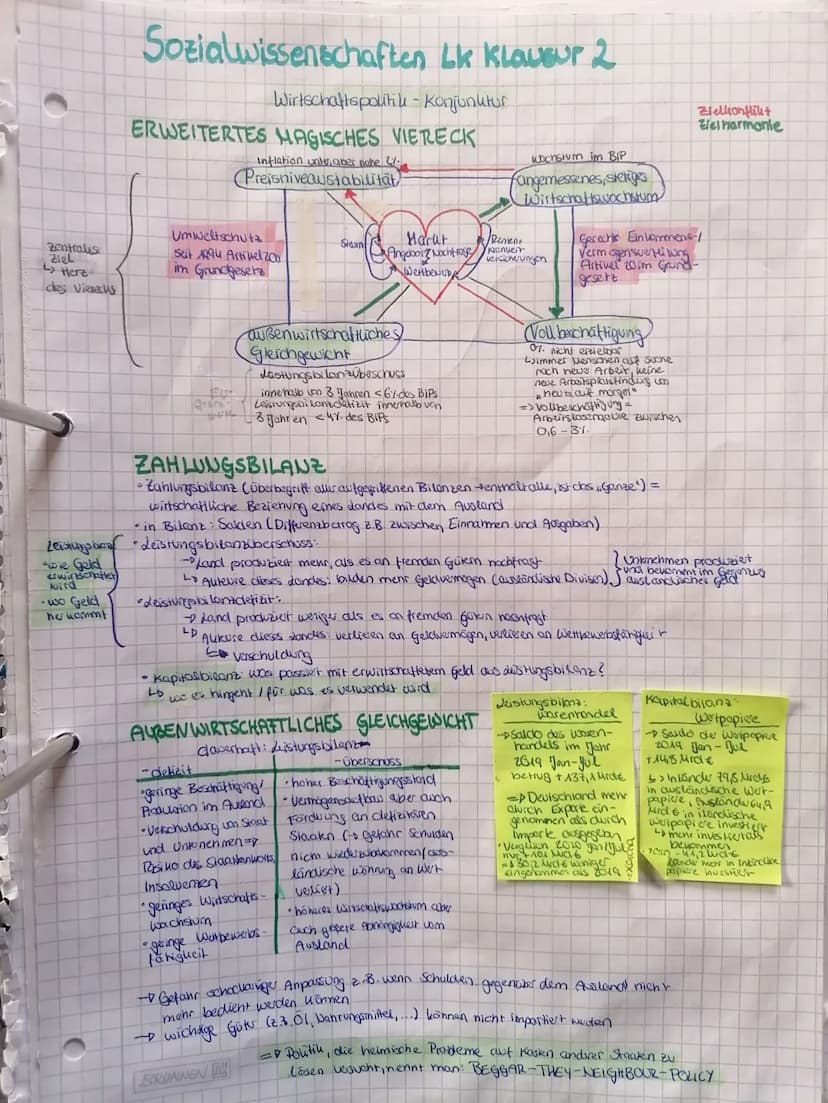 Sozialwissenschaften LK Klausur 2
Wirtschaftspolitik - Konjunktur
Zielkonflikt
Zielharmonie
ERWEITERTES MAGISCHES VIERECK
Inflation unter, aber nahe 2%
Preisniveaustabilität
Wachstum im BIP
angemessenes, stetiges
Wirtschaftswachstum
zentrales
Ziel
↳ Herz
des Vierecks
Umweltschutz
seit 1994 Artikel 20a
im Grundgesetz
Markt
Angebot & Nachfrage
Wettbewerb
Steuern
Renten
versicherungen
Gerechte Einkommens-/
Vermögensverteilung
Artikel 20 im Grund-
gesetz
außenwirtschaftliches
Gleichgewicht
Vollbeschäftigung
Leistungsbilanzüberschuss
innerhalb von 3 Jahren <6% des BIPs
Leistungsbilanzdefizit innerhalb von
3 Jahren <4% des BIPs
EU-
0% nicht erzielbar
↳ immer Menschen auf Suche
nach neuer Arbeit, keine
neue Arbeitsplatzfindung von
"heute auf morgen"
=> Vollbeschäftigung =
Arbeitslosenquote zwischen
0,6 - 3%
ZAHLUNGSBILANZ
• Zahlungsbilanz (Überbegriff aller aufgegriffenen Bilanzen → enthält alle, ist das "Ganze") =
wirtschaftliche Beziehung eines Landes mit dem Ausland
• in Bilanz: Salden (Differenzbetrag z.B. zwischen Einnahmen und Ausgaben)
Leistungsbilanz
• wie Geld
erwirtschaftet
wird
• wo Geld
herkommt
• Leistungsbilanzüberschuss:
→ Land produziert mehr, als es an fremden Gütern nachfragt
↳ Akteure dieses Landes: bilden mehr Geldvermögen (ausländische Divisen)
Unternehmen produziert
und bekommt im Gegenzug
ausländisches Geld
• Leistungsbilanzdefizit:
→ Land produziert weniger als es an fremden Gütern nachfragt
↳ Akteure dieses Landes: verlieren an Geldvermögen, verlieren an Wettbewerbsfähigkeit
↳ Verschuldung
• Kapitalbilanz: was passiert mit erwirtschaftetem Geld aus Leistungsbilanz?
↳ wo es hingeht / für was es verwendet wird
AUßENWIRTSCHAFTLICHES GLEICHGEWICHT
dauerhaft: Leistungsbilanz-
-defizit
• geringe Beschäftigung/
Produktion im Ausland
• Verschuldung von Staat
und Unternehmen =>
Risiko des Staatsbankrotts,
Insolvenzen
• geringes Wirtschafts-
wachstum
• geringe Wettbewerbs-
fähigkeit
-überschuss
• hoher Beschäftigungsstand
• Vermögensaufbau aber auch
Forderung an defizitären
Staaten (→ Gefahr Schulden
nicht wiederzubekommen/aus-
ländische Währung an Wert
verliert)
• höheres Wirtschaftswachstum aber
auch größere Abhängigkeit vom
Ausland
Leistungsbilanz:
Warenhandel
→ Saldo des Waren-
handels im Jahr
2019 Jan-Jul
betrug +137,1 Mrd€
=> Deutschland mehr
durch Exporte ein-
genommen als durch
Importe ausgegeben
• Vergleich 2020 Jan-Jul
Kapitalbilanz:
Wertpapiere
→ Saldo der Wertpapiere
2019 Jan-Jul
+14,5 Mrd€
in ausländische Wert-
papiere,
Mrd € in inländische
Wertpapiere investiert
↳ mehr investiert als
bekommen
→ Gefahr schockartiger Anpassung z.B. wenn Schulden gegenüber dem Ausland nicht
mehr bedient werden können
→ wichtige Güter (z.B. Öl, Nahrungsmittel, ...) können nicht importiert werden
=> Politik, die heimische Probleme auf Kosten anderer Staaten zu
lösen versucht, nennt man: BEGGAR-THEY-NEIGHBOUR-POLICY
BRUNNEN